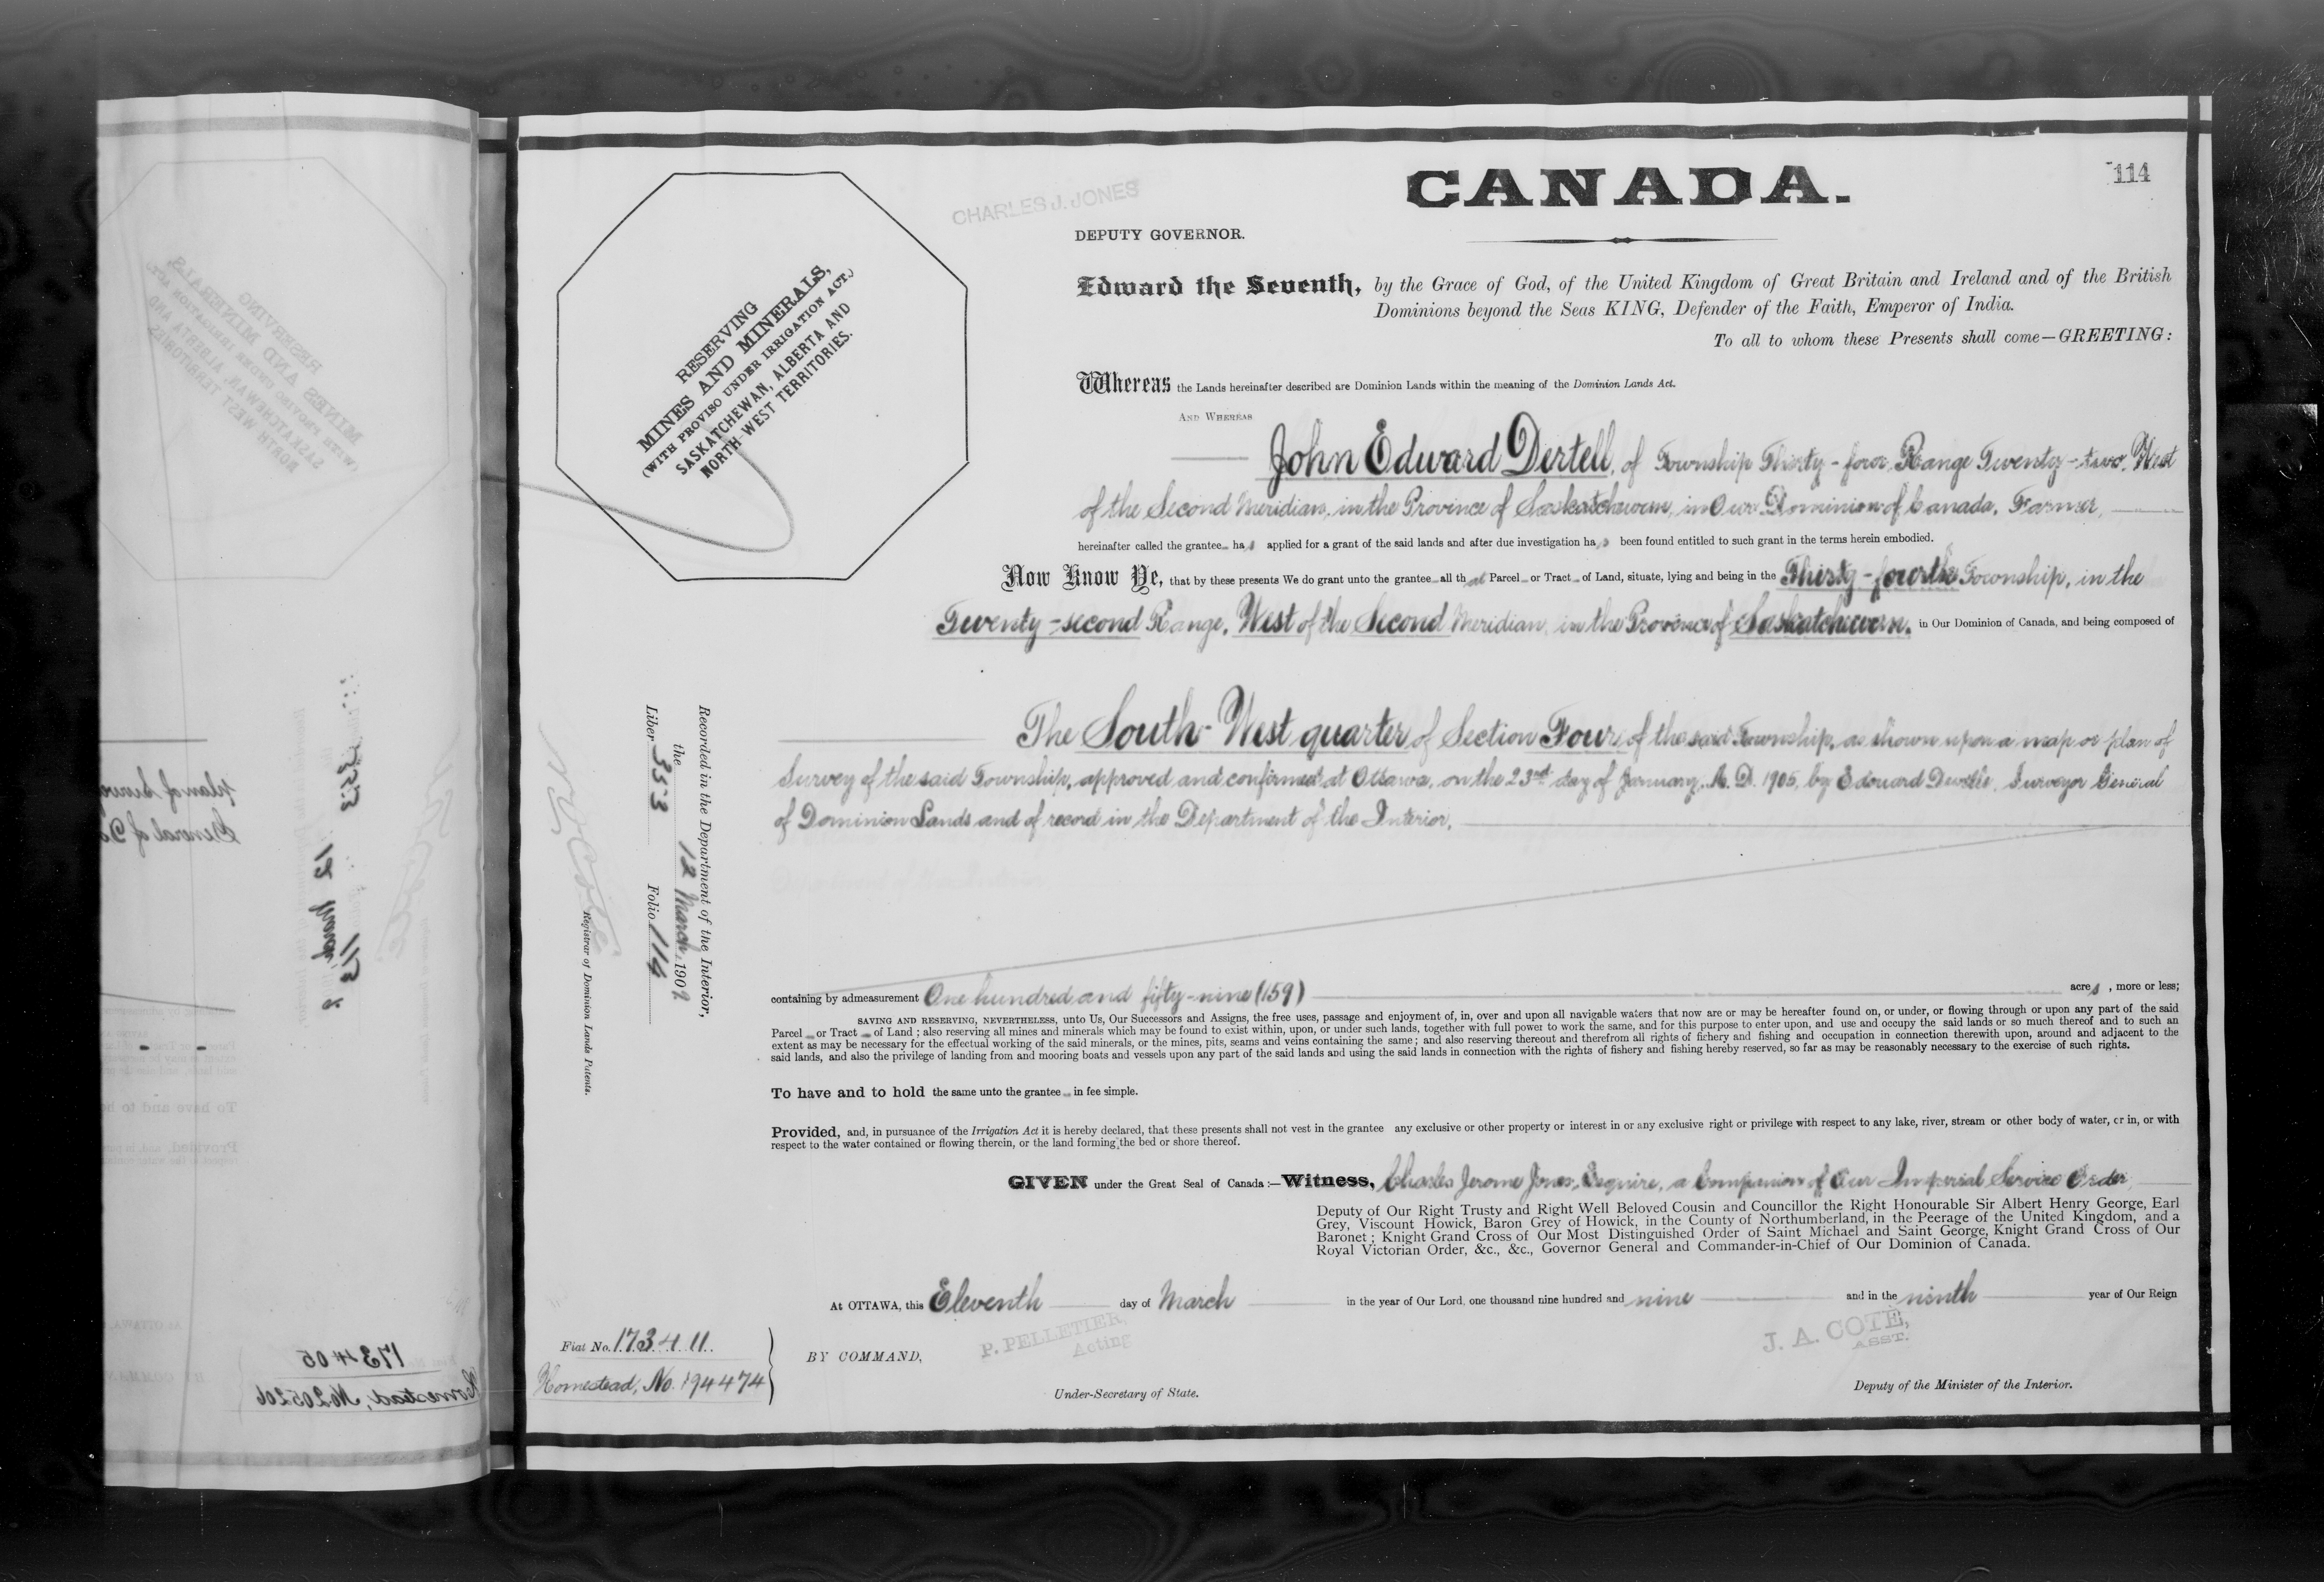 114
CANADA.
CHARLES J. JONES
DEPUTY GOVERNOR.
Edward the Seventh, by the Grace of God, of the United Kingdom of Great Britain and Ireland and of the British
Dominions beyond the Seas KING, Defender of the Faith, Emperor of India.
To all to whom these Presents shall come—GREETING:
RESERVING
MINES AND MINERALS,
(WITH PROVISO UNDER IRRIGATION ACT.)
SASKATCHEWAN, ALBERTA AND
NORTH-WEST TERRITORIES.
Whereas the Lands hereinafter described are Dominion Lands within the meaning of the Dominion Lands Act.
AND WHEREAS
John Edward Dertell, of Township Thirty-four, Range Twenty-two, West
of the Second Meridian, in the Province of Saskatchewan, in Our Dominion of Canada, Farmer,
hereinafter called the grantee has applied for a grant of the said lands and after due investigation has been found entitled to such grant in the terms herein embodied.
Now Know Ye, that by these presents We do grant unto the grantee all that Parcel or Tract of Land, situate, lying and being in the Thirty-fourth Township, in the
Twenty-second Range, West of the Second Meridian, in the Province of Saskatchewan, in Our Dominion of Canada, and being composed of
The South-West quarter of Section Four, of the said Township, as shown upon a map or plan of
Survey of the said Township, approved and confirmed at Ottawa, on the 23rd day of January, A. D. 1905, by Edouard Deville, Surveyor General
of Dominion Lands and of record in the Department of the Interior,
Recorded in the Department of the Interior,
the 12 March, 1909
Liber 353 Folio 114
N O Coté
Registrar of Dominion Lands Patents.
containing by admeasurement One hundred and fifty-nine (159) acres, more or less;
SAVING AND RESERVING, NEVERTHELESS, unto Us, Our Successors and Assigns, the free uses, passage and enjoyment of, in, over and upon all navigable waters that now are or may be hereafter found on, or under, or flowing through or upon any part of the said
Parcel or Tract of Land; also reserving all mines and minerals which may be found to exist within, upon, or under such lands, together with full power to work the same, and for this purpose to enter upon, and use and occupy the said lands or so much thereof and to such an
extent as may be necessary for the effectual working of the said minerals, or the mines, pits, seams and veins containing the same; and also reserving thereout and therefrom all rights of fichery and fishing and occupation in connection therewith upon, around and adjacent to the
said lands, and also the privilege of landing from and mooring boats and vessels upon any part of the said lands and using the said lands in connection with the rights of fishery and fishing hereby reserved, so far as may be reasonably necessary to the exercise of such rights.
To have and to hold the same unto the grantee in fee simple.
Provided, and, in pursuance of the Irrigation Act it is hereby declared, that these presents shall not vest in the grantee any exclusive or other property or interest in or any exclusive right or privilege with respect to any lake, river, stream or other body of water, or in, or with
respect to the water contained or flowing therein, or the land forming the bed or shore thereof.
GIVEN under the Great Seal of Canada:—Witness, Charles Jerome Jones, Esquire, a Companion of Our Imperial Service Order
Deputy of Our Right Trusty and Right Well Beloved Cousin and Councillor the Right Honourable Sir Albert Henry George, Earl
Grey, Viscount Howick, Baron Grey of Howick, in the County of Northumberland, in the Peerage of the United Kingdom, and a
Baronet; Knight Grand Cross of Our Most Distinguished Order of Saint Michael and Saint George, Knight Grand Cross of Our
Royal Victorian Order, &c., &c., Governor General and Commander-in-Chief of Our Dominion of Canada.
At OTTAWA, this Eleventh day of March in the year of Our Lord, one thousand nine hundred and nine and in the ninth year of Our Reign
Fiat No. 173411.
Homestead, No. 194474
BY COMMAND,
P. PELLETIER,
Acting
Under-Secretary of State.
J. A. COTÉ,
ASST.
Deputy of the Minister of the Interior.
plan of Survey
General of Do
353
12 March
113
173405
Homestead, No 205206